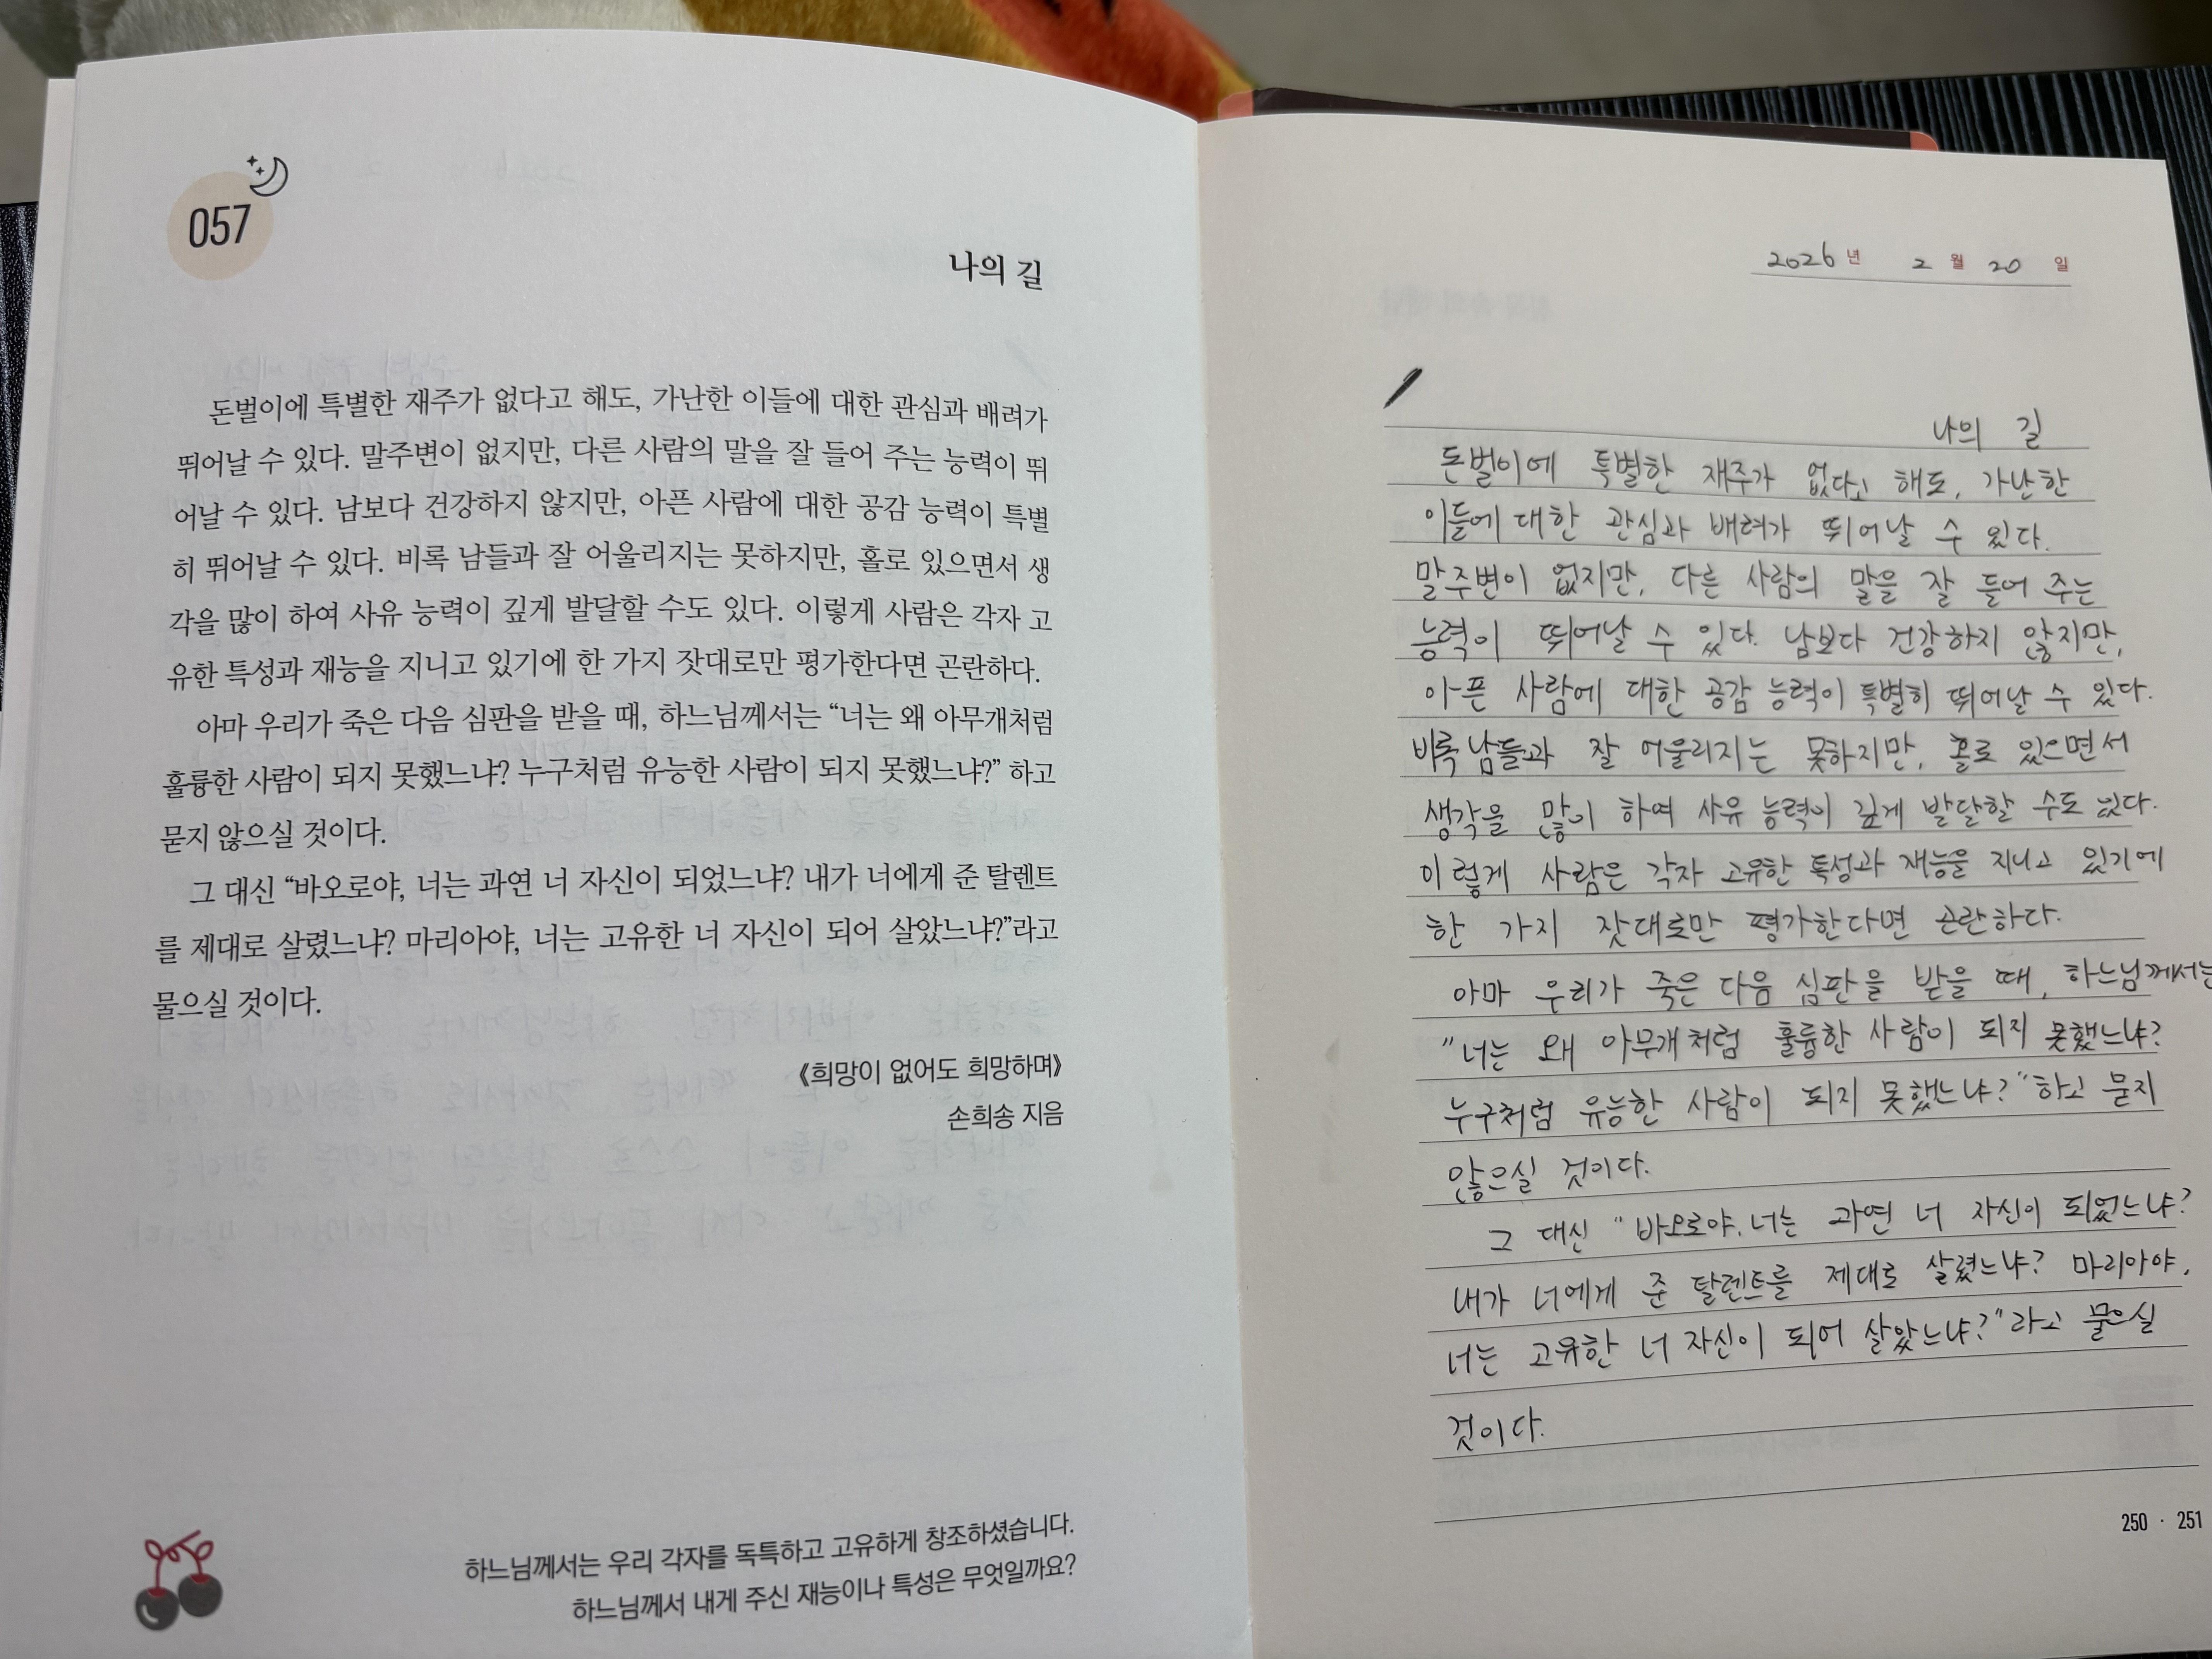 057
나의 길
돈벌이에 특별한 재주가 없다고 해도, 가난한 이들에 대한 관심과 배려가
뛰어날 수 있다. 말주변이 없지만, 다른 사람의 말을 잘 들어 주는 능력이 뛰
어날 수 있다. 남보다 건강하지 않지만, 아픈 사람에 대한 공감 능력이 특별
히 뛰어날 수 있다. 비록 남들과 잘 어울리지는 못하지만, 홀로 있으면서 생
각을 많이 하여 사유 능력이 깊게 발달할 수도 있다. 이렇게 사람은 각자 고
유한 특성과 재능을 지니고 있기에 한 가지 잣대로만 평가한다면 곤란하다.
아마 우리가 죽은 다음 심판을 받을 때, 하느님께서는 “너는 왜 아무개처럼
훌륭한 사람이 되지 못했느냐? 누구처럼 유능한 사람이 되지 못했느냐?” 하고
묻지 않으실 것이다.
그 대신 “바오로야, 너는 과연 너 자신이 되었느냐? 내가 너에게 준 탈렌트
를 제대로 살렸느냐? 마리아야, 너는 고유한 너 자신이 되어 살았느냐?”라고
물으실 것이다.
《희망이 없어도 희망하며》
손희송 지음
하느님께서는 우리 각자를 독특하고 고유하게 창조하셨습니다.
하느님께서 내게 주신 재능이나 특성은 무엇일까요?
2026년 2월 20일
나의 길
돈벌이에 특별한 재주가 없다고 해도, 가난한
이들에 대한 관심과 배려가 뛰어날 수 있다.
말주변이 없지만, 다른 사람의 말을 잘 들어 주는
능력이 뛰어날 수 있다. 남보다 건강하지 않지만,
아픈 사람에 대한 공감 능력이 특별히 뛰어날 수 있다.
비록 남들과 잘 어울리지는 못하지만, 홀로 있으면서
생각을 많이 하여 사유 능력이 깊게 발달할 수도 있다.
이렇게 사람은 각자 고유한 특성과 재능을 지니고 있기에
한 가지 잣대로만 평가한다면 곤란하다.
아마 우리가 죽은 다음 심판을 받을 때, 하느님께서는
"너는 왜 아무개처럼 훌륭한 사람이 되지 못했느냐?
누구처럼 유능한 사람이 되지 못했느냐?" 하고 묻지
않으실 것이다.
그 대신 "바오로야, 너는 과연 너 자신이 되었느냐?
내가 너에게 준 탈렌트를 제대로 살렸느냐? 마리아야,
너는 고유한 너 자신이 되어 살았느냐?"라고 물으실
것이다.
250 · 251